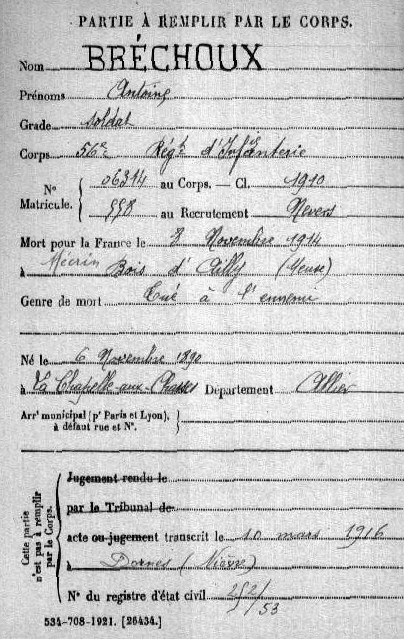 PARTIE À REMPLIR PAR LE CORPS.
Nom BRÉCHOUX
Prénoms Antoine
Grade soldat
Corps 56e Régt d'Infanterie
N° Matricule. { 06314 au Corps. — Cl. 1910
558 au Recrutement Nevers
Mort pour la France le 8 Novembre 1914
à Mécrin Bois d'Ailly (Meuse)
Genre de mort Tué à l'ennemi
Né le 6 Novembre 1890
à La Chapelle-aux-Chasses Département Allier
Arrt municipal (pr Paris et Lyon), à défaut rue et N°.
Cette partie n'est pas à remplir par le Corps.
Jugement rendu le
par le Tribunal de
acte ou jugement transcrit le 10 mars 1916
à Dornes (Nièvre)
N° du registre d'état civil 252/53
534-708-1921. [26434.]